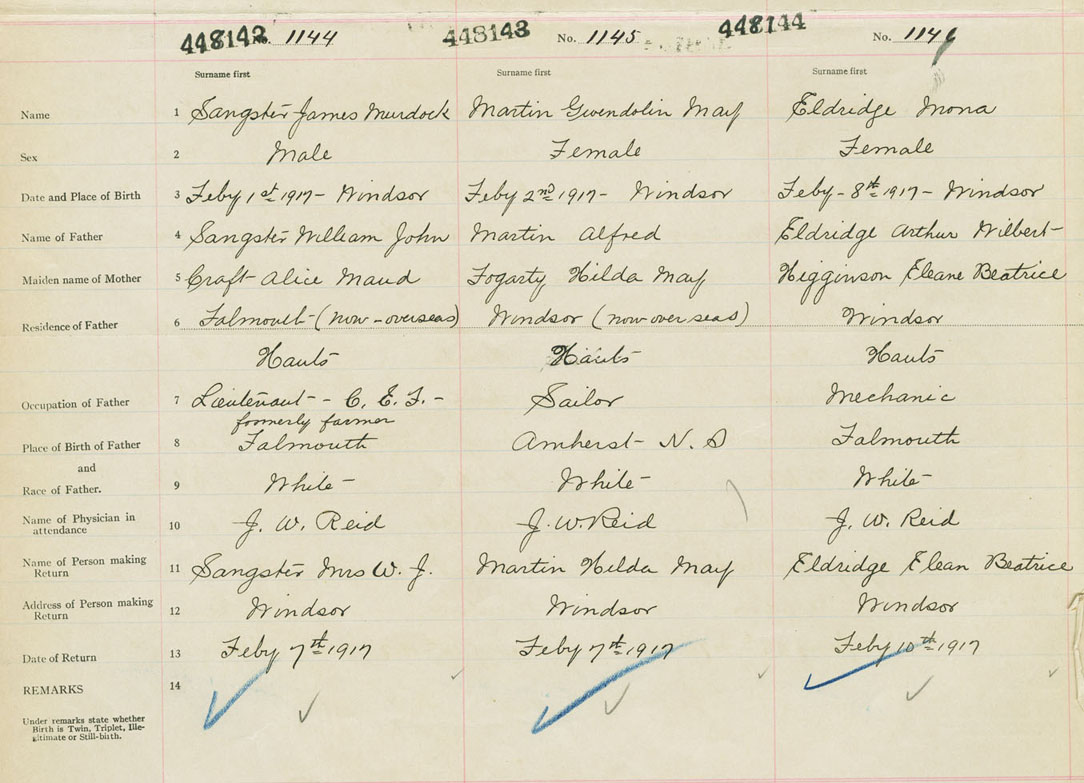 448142 No. 1144 448143 No. 1145 448144 No. 1146
Surname first Surname first Surname first
Name 1 Sangster James Murdock Martin Gwendolin May Eldridge Mona
Sex 2 Male Female Female
Date and Place of Birth 3 Feby 1st 1917 - Windsor Feby 2nd 1917 - Windsor Feby - 8th 1917 - Windsor
Name of Father 4 Sangster William John Martin Alfred Eldridge Arthur Wilbert
Maiden name of Mother 5 Craft Alice Maud Fogarty Hilda May Higginson Eleane Beatrice
Residence of Father 6 Falmouth (now - overseas) Windsor (now over seas) Windsor
Hants Hants Hants
Occupation of Father 7 Lieutenant - C. E. F. - Sailor Mechanic
formerly farmer
Place of Birth of Father 8 Falmouth Amherst N. S Falmouth
and
Race of Father. 9 White White White
Name of Physician in
attendance 10 J. W. Reid J. W. Reid J. W. Reid
Name of Person making
Return 11 Sangster Mrs W. J. Martin Hilda May Eldridge Elean Beatrice
Address of Person making
Return 12 Windsor Windsor Windsor
Date of Return 13 Feby 7th 1917 Feby 7th 1917 Feby 10th 1917
REMARKS 14
Under remarks state whether
Birth is Twin, Triplet, Ille-
gitimate or Still-birth.